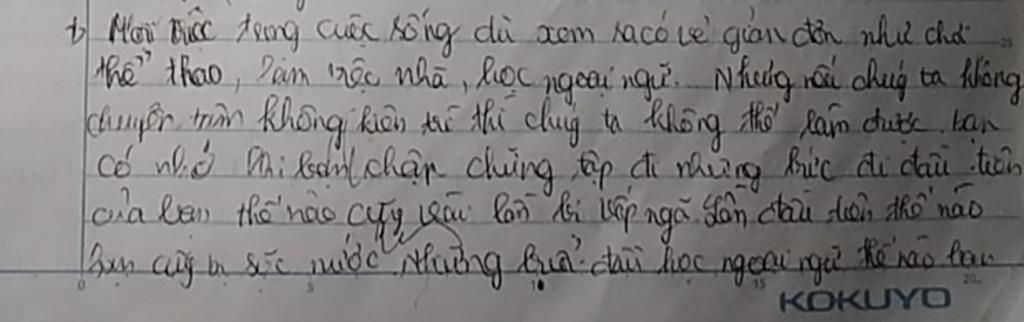 b Mọi việc trong cuộc sống dù xem ra có vẻ giản đơn như chơi
thể thao, làm việc nhà, học ngoại ngữ. Nhưng nếu chúng ta không
chuyên tâm không kiên trì thì chúng ta không thể làm được. bạn
có nhớ khi bạn chập chững tập đi những bước đi đầu tiên
của bạn thế nào cũng vài lần bị vấp ngã lần đầu tiên thế nào
bạn cũng bị sặc nước Những buổi đầu học ngoại ngữ thế nào bạn
0 5 10 15 20
KOKUYO